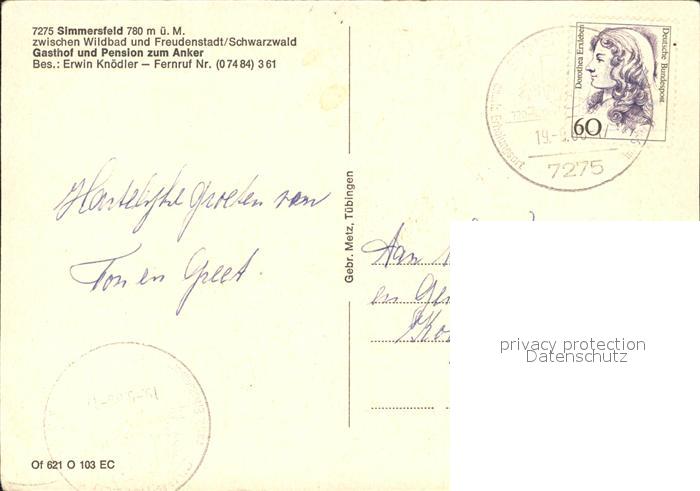 7275 Simmersfeld 780 m ü. M.
zwischen Wildbad und Freudenstadt/Schwarzwald
Gasthof und Pension zum Anker
Bes.: Erwin Knödler — Fernruf Nr. (0 74 84) 3 61
Dorothea Erxleben
Deutsche Bundespost
60
7275
Gebr. Metz, Tübingen
Hartelijke Groeten van
Ton en Greet.
Aan
en
privacy protection
Datenschutz
Of 621 O 103 EC